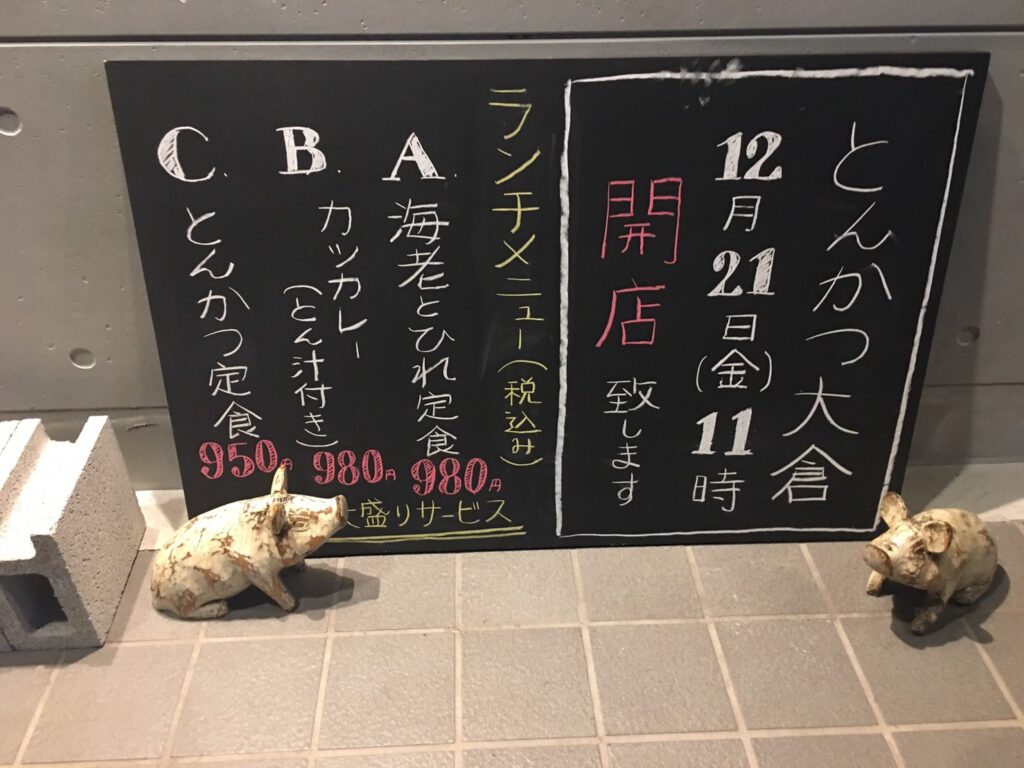 とんかつ大倉
12月21日(金)11時
開店致します
ランチメニュー(税込み)
A.海老とひれ定食
980円
B.カツカレー
(とん汁付き)
980円
C.とんかつ定食
950円
大盛りサービス